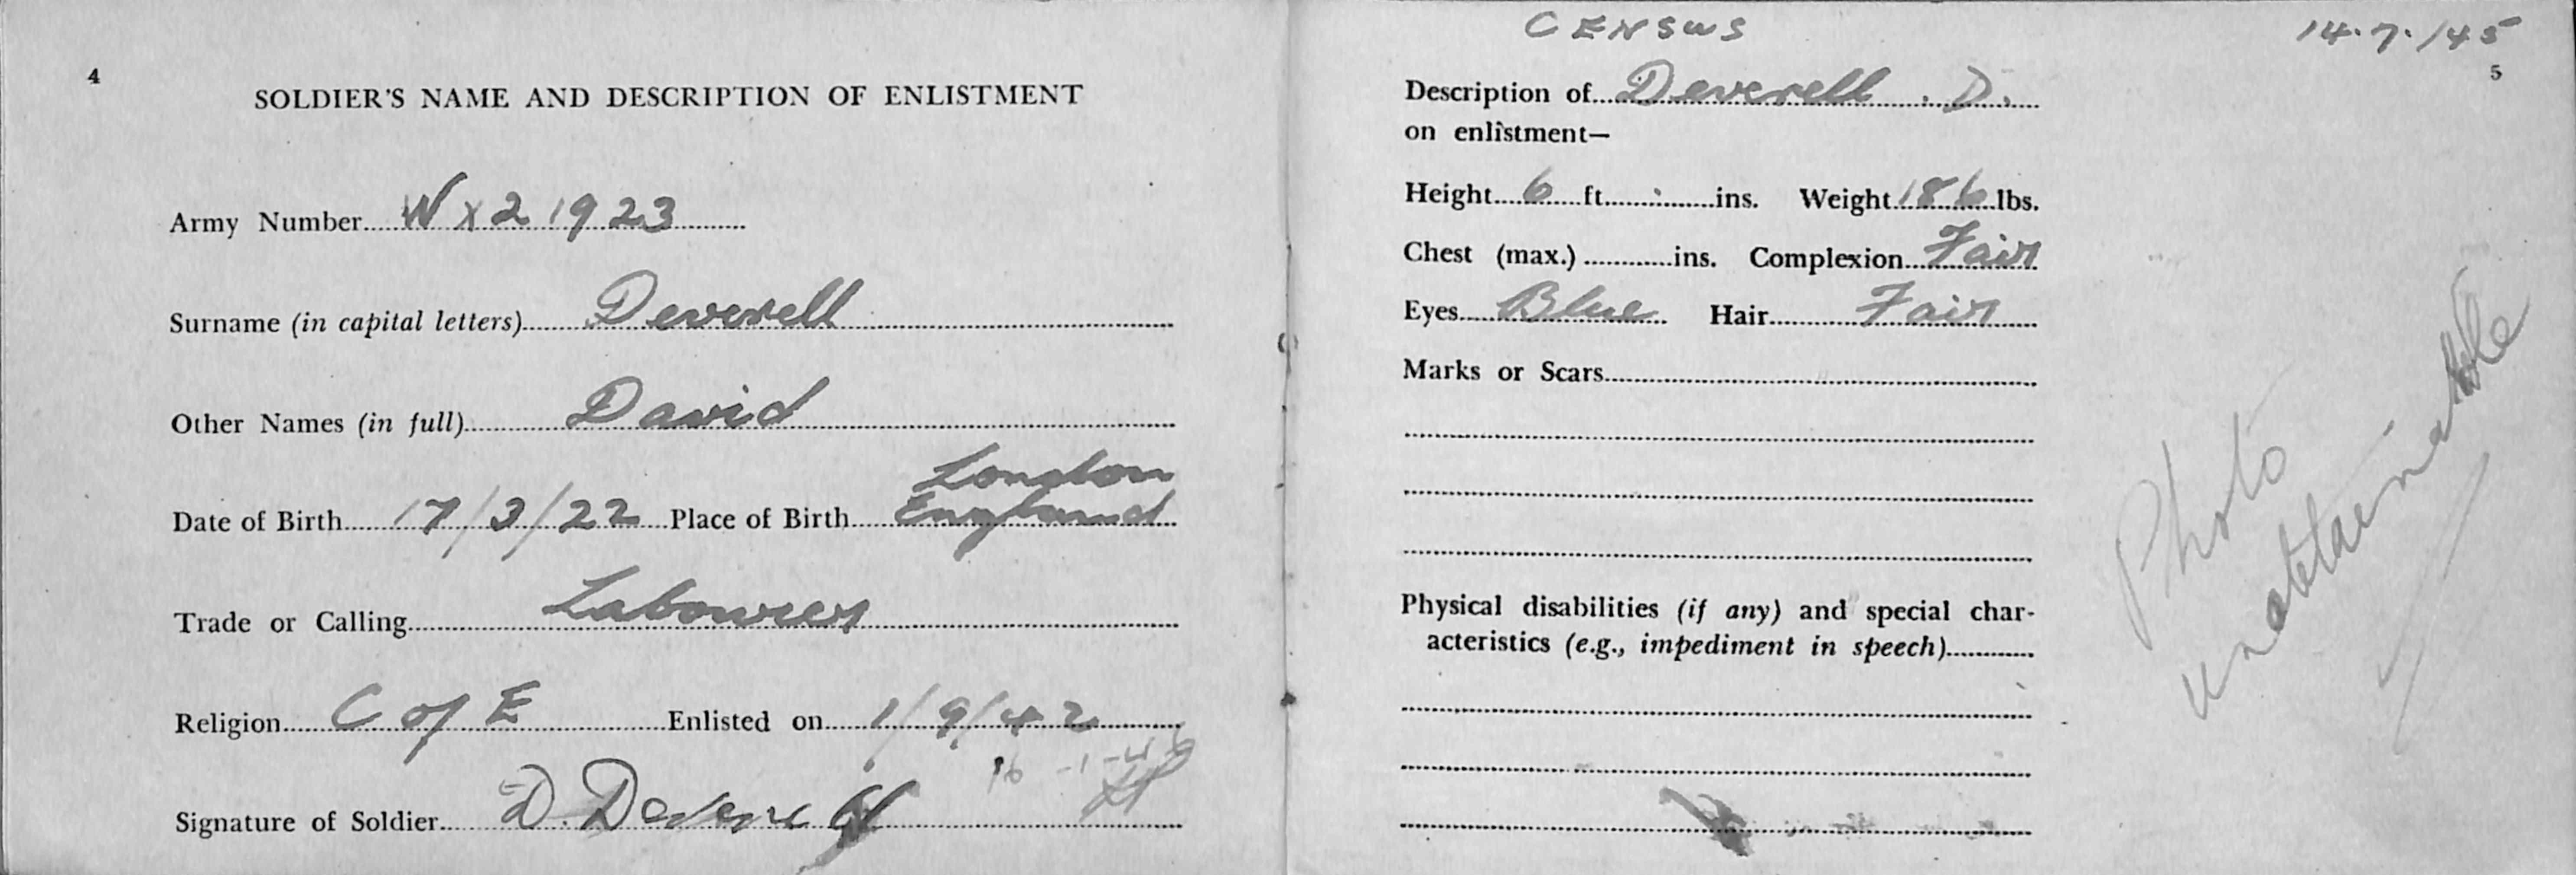 4
SOLDIER'S NAME AND DESCRIPTION OF ENLISTMENT
Army Number....WX21923
Surname (in capital letters)....Deverell
Other Names (in full)....David
London
Date of Birth....17/3/22....Place of Birth....England
Trade or Calling....Labourer
Religion....C of E....Enlisted on....1/9/42
16-1-46
Signature of Soldier....D. Deverell
CENSUS 14.7./45
5
Description of....Deverell. D.
on enlistment—
Height....6....ft.........ins. Weight 186 lbs.
Chest (max.)............ins. Complexion....Fair
Eyes....Blue.... Hair....Fair
Marks or Scars....
Physical disabilities (if any) and special char-
acteristics (e.g., impediment in speech)............
Photo
unobtainable